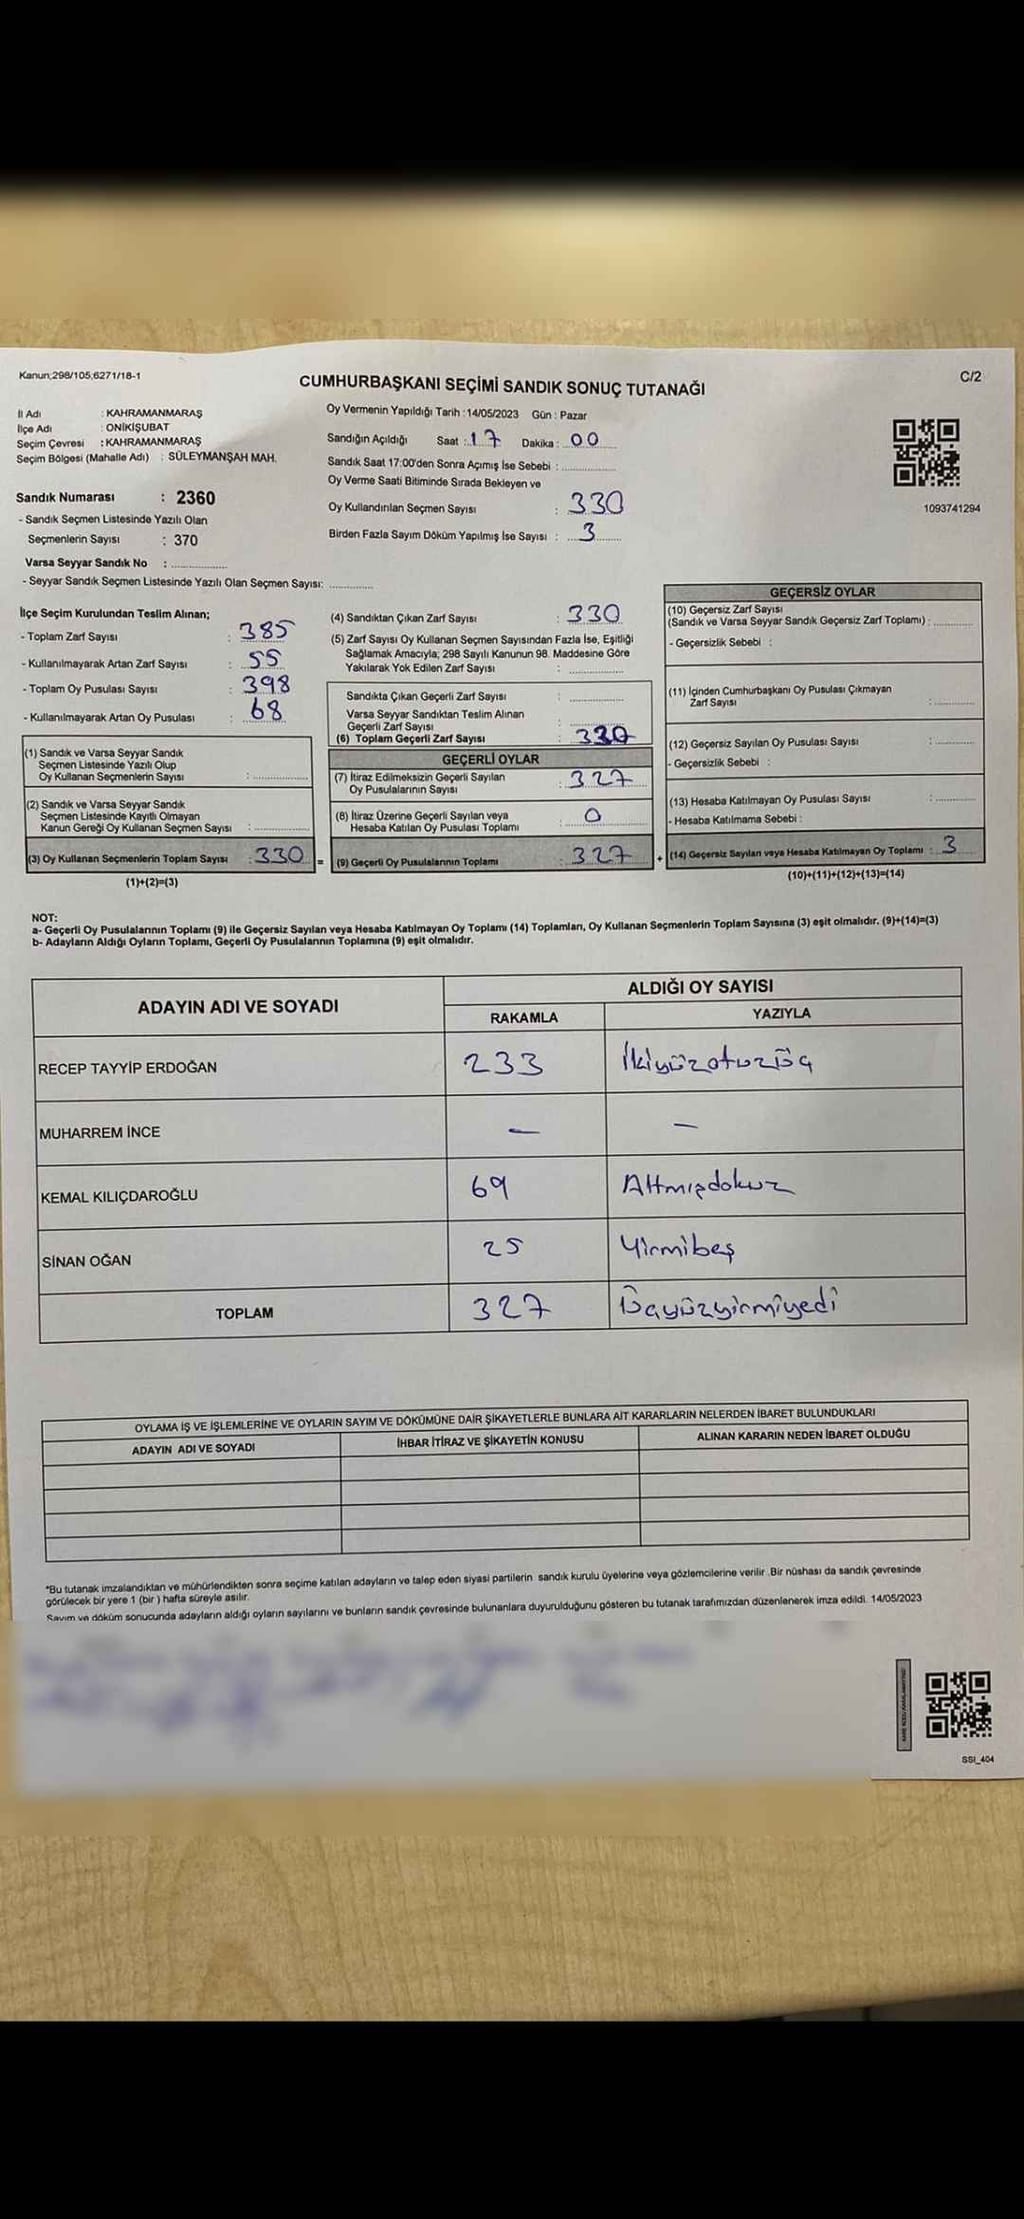 Kanun;298/105,6271/18-1
C/2
CUMHURBAŞKANI SEÇİMİ SANDIK SONUÇ TUTANAĞI
İl Adı : KAHRAMANMARAŞ
İlçe Adı : ONİKİŞUBAT
Seçim Çevresi : KAHRAMANMARAŞ
Seçim Bölgesi (Mahalle Adı) : SÜLEYMANŞAH MAH.
Sandık Numarası : 2360
- Sandık Seçmen Listesinde Yazılı Olan
Seçmenlerin Sayısı : 370
Varsa Seyyar Sandık No : ................
- Seyyar Sandık Seçmen Listesinde Yazılı Olan Seçmen Sayısı: ............
Oy Vermenin Yapıldığı Tarih : 14/05/2023 Gün : Pazar
Sandığın Açıldığı Saat : 17 Dakika : 00
Sandık Saat 17:00'den Sonra Açımış İse Sebebi : ...............
Oy Verme Saati Bitiminde Sırada Bekleyen ve
Oy Kullandırılan Seçmen Sayısı : 330
Birden Fazla Sayım Döküm Yapılmış İse Sayısı : 3
1093741294
İlçe Seçim Kurulundan Teslim Alınan;
- Toplam Zarf Sayısı : 385
- Kullanılmayarak Artan Zarf Sayısı : 55
- Toplam Oy Pusulası Sayısı : 398
- Kullanılmayarak Artan Oy Pusulası : 68
(1) Sandık ve Varsa Seyyar Sandık
Seçmen Listesinde Yazılı Olup
Oy Kullanan Seçmenlerin Sayısı : ...............
(2) Sandık ve Varsa Seyyar Sandık
Seçmen Listesinde Kayıtlı Olmayan
Kanun Gereği Oy Kullanan Seçmen Sayısı : ...............
(3) Oy Kullanan Seçmenlerin Toplam Sayısı : 330 =
(1)+(2)=(3)
(4) Sandıktan Çıkan Zarf Sayısı : 330
(5) Zarf Sayısı Oy Kullanan Seçmen Sayısından Fazla İse, Eşitliği
Sağlamak Amacıyla; 298 Sayılı Kanunun 98. Maddesine Göre
Yakılarak Yok Edilen Zarf Sayısı : ...............
Sandıkta Çıkan Geçerli Zarf Sayısı : ...............
Varsa Seyyar Sandıktan Teslim Alınan
Geçerli Zarf Sayısı : ...............
(6) Toplam Geçerli Zarf Sayısı : 330
GEÇERLİ OYLAR
(7) İtiraz Edilmeksizin Geçerli Sayılan
Oy Pusulalarının Sayısı : 327
(8) İtiraz Üzerine Geçerli Sayılan veya
Hesaba Katılan Oy Pusulası Toplamı : 0
(9) Geçerli Oy Pusulalarının Toplamı : 327 +
GEÇERSİZ OYLAR
(10) Geçersiz Zarf Sayısı
(Sandık ve Varsa Seyyar Sandık Geçersiz Zarf Toplamı) : ...........
- Geçersizlik Sebebi :
(11) İçinden Cumhurbaşkanı Oy Pusulası Çıkmayan
Zarf Sayısı : ...........
(12) Geçersiz Sayılan Oy Pusulası Sayısı : ...........
- Geçersizlik Sebebi :
(13) Hesaba Katılmayan Oy Pusulası Sayısı : ...........
- Hesaba Katılmama Sebebi :
(14) Geçersiz Sayılan veya Hesaba Katılmayan Oy Toplamı : 3
(10)+(11)+(12)+(13)=(14)
NOT:
a- Geçerli Oy Pusulalarının Toplamı (9) ile Geçersiz Sayılan veya Hesaba Katılmayan Oy Toplamı (14) Toplamları, Oy Kullanan Seçmenlerin Toplam Sayısına (3) eşit olmalıdır. (9)+(14)=(3)
b- Adayların Aldığı Oyların Toplamı, Geçerli Oy Pusulalarının Toplamına (9) eşit olmalıdır.
ADAYIN ADI VE SOYADI ALDIĞI OY SAYISI
RAKAMLA YAZIYLA
RECEP TAYYİP ERDOĞAN 233 İkiyüzotuzüç
MUHARREM İNCE – –
KEMAL KILIÇDAROĞLU 69 Altmışdokuz
SİNAN OĞAN 25 Yirmibeş
TOPLAM 327 Üçyüzyirmiyedi
OYLAMA İŞ VE İŞLEMLERİNE VE OYLARIN SAYIM VE DÖKÜMÜNE DAİR ŞİKAYETLERLE BUNLARA AİT KARARLARIN NELERDEN İBARET BULUNDUKLARI
ADAYIN ADI VE SOYADI İHBAR İTİRAZ VE ŞİKAYETİN KONUSU ALINAN KARARIN NEDEN İBARET OLDUĞU
*Bu tutanak imzalandıktan ve mühürlendikten sonra seçime katılan adayların ve talep eden siyasi partilerin sandık kurulu üyelerine veya gözlemcilerine verilir .Bir nüshası da sandık çevresinde
görülecek bir yere 1 (bir ) hafta süreyle asılır.
Sayım ve döküm sonucunda adayların aldığı oyların sayılarını ve bunların sandık çevresinde bulunanlara duyurulduğunu gösteren bu tutanak tarafımızdan düzenlenerek imza edildi. 14/05/2023
SSI_404